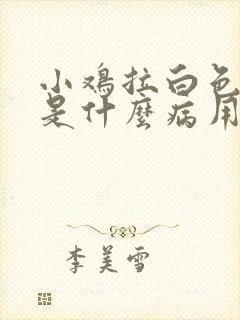 小鸡拉白色
是什麽病用
李美雪